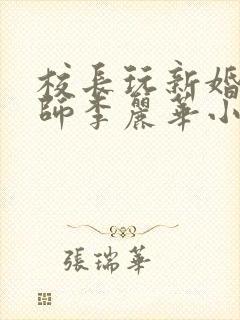 校長玩新婚
師李麗華小
張瑞華